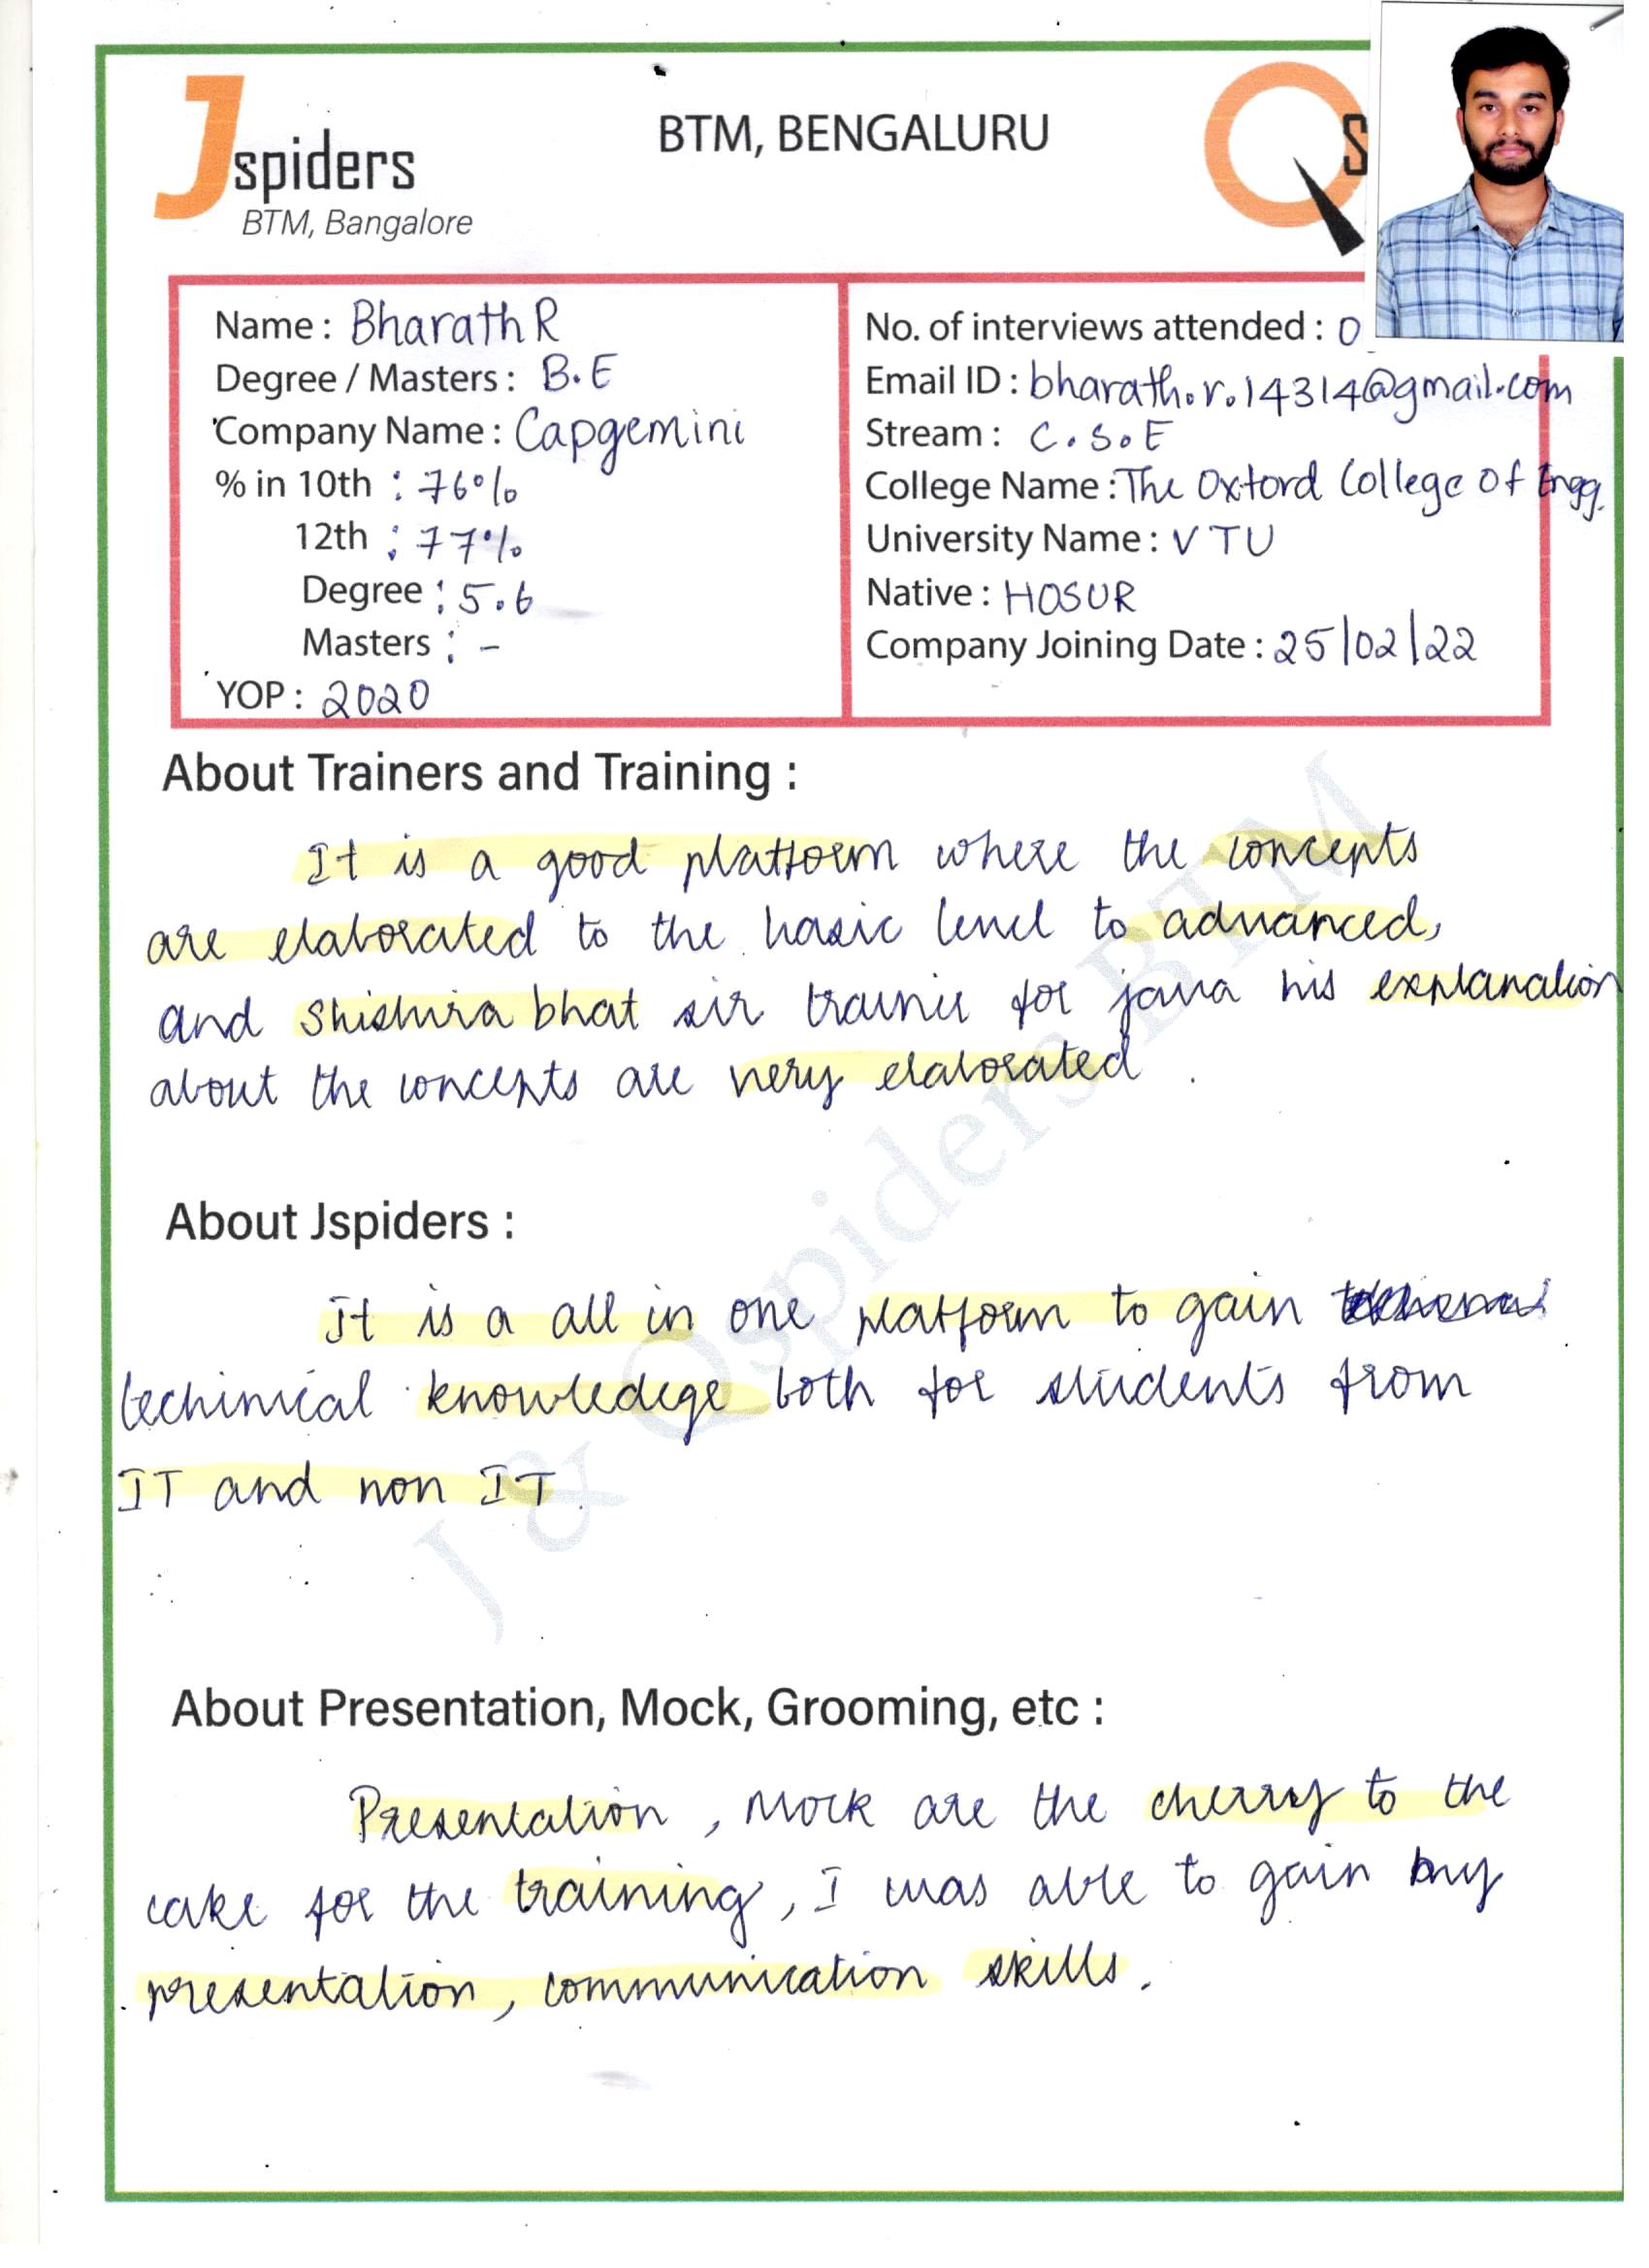 Jspiders
BTM, Bangalore
BTM, BENGALURU
Name : Bharath R
Degree / Masters : B.E
Company Name : Capgemini
% in 10th : 76%
12th : 77%
Degree : 5.6
Masters : -
YOP : 2020
No. of interviews attended : 0
Email ID : bharath.r.14314@gmail.com
Stream : C.S.E
College Name : The Oxford College Of Engg.
University Name : VTU
Native : HOSUR
Company Joining Date : 25/02/22
About Trainers and Training :
It is a good platform where the concepts
are elaborated to the basic level to advanced,
and Shishira bhat sir trainer for java his explanation
about the concepts are very elaborated .
About Jspiders :
It is a all in one platform to gain
techinical knowledege both for students from
IT and non IT.
About Presentation, Mock, Grooming, etc :
Presentation, Mock are the cherry to the
cake for the training, I was able to gain my
presentation, communication skills.
J & Qspiders BTM